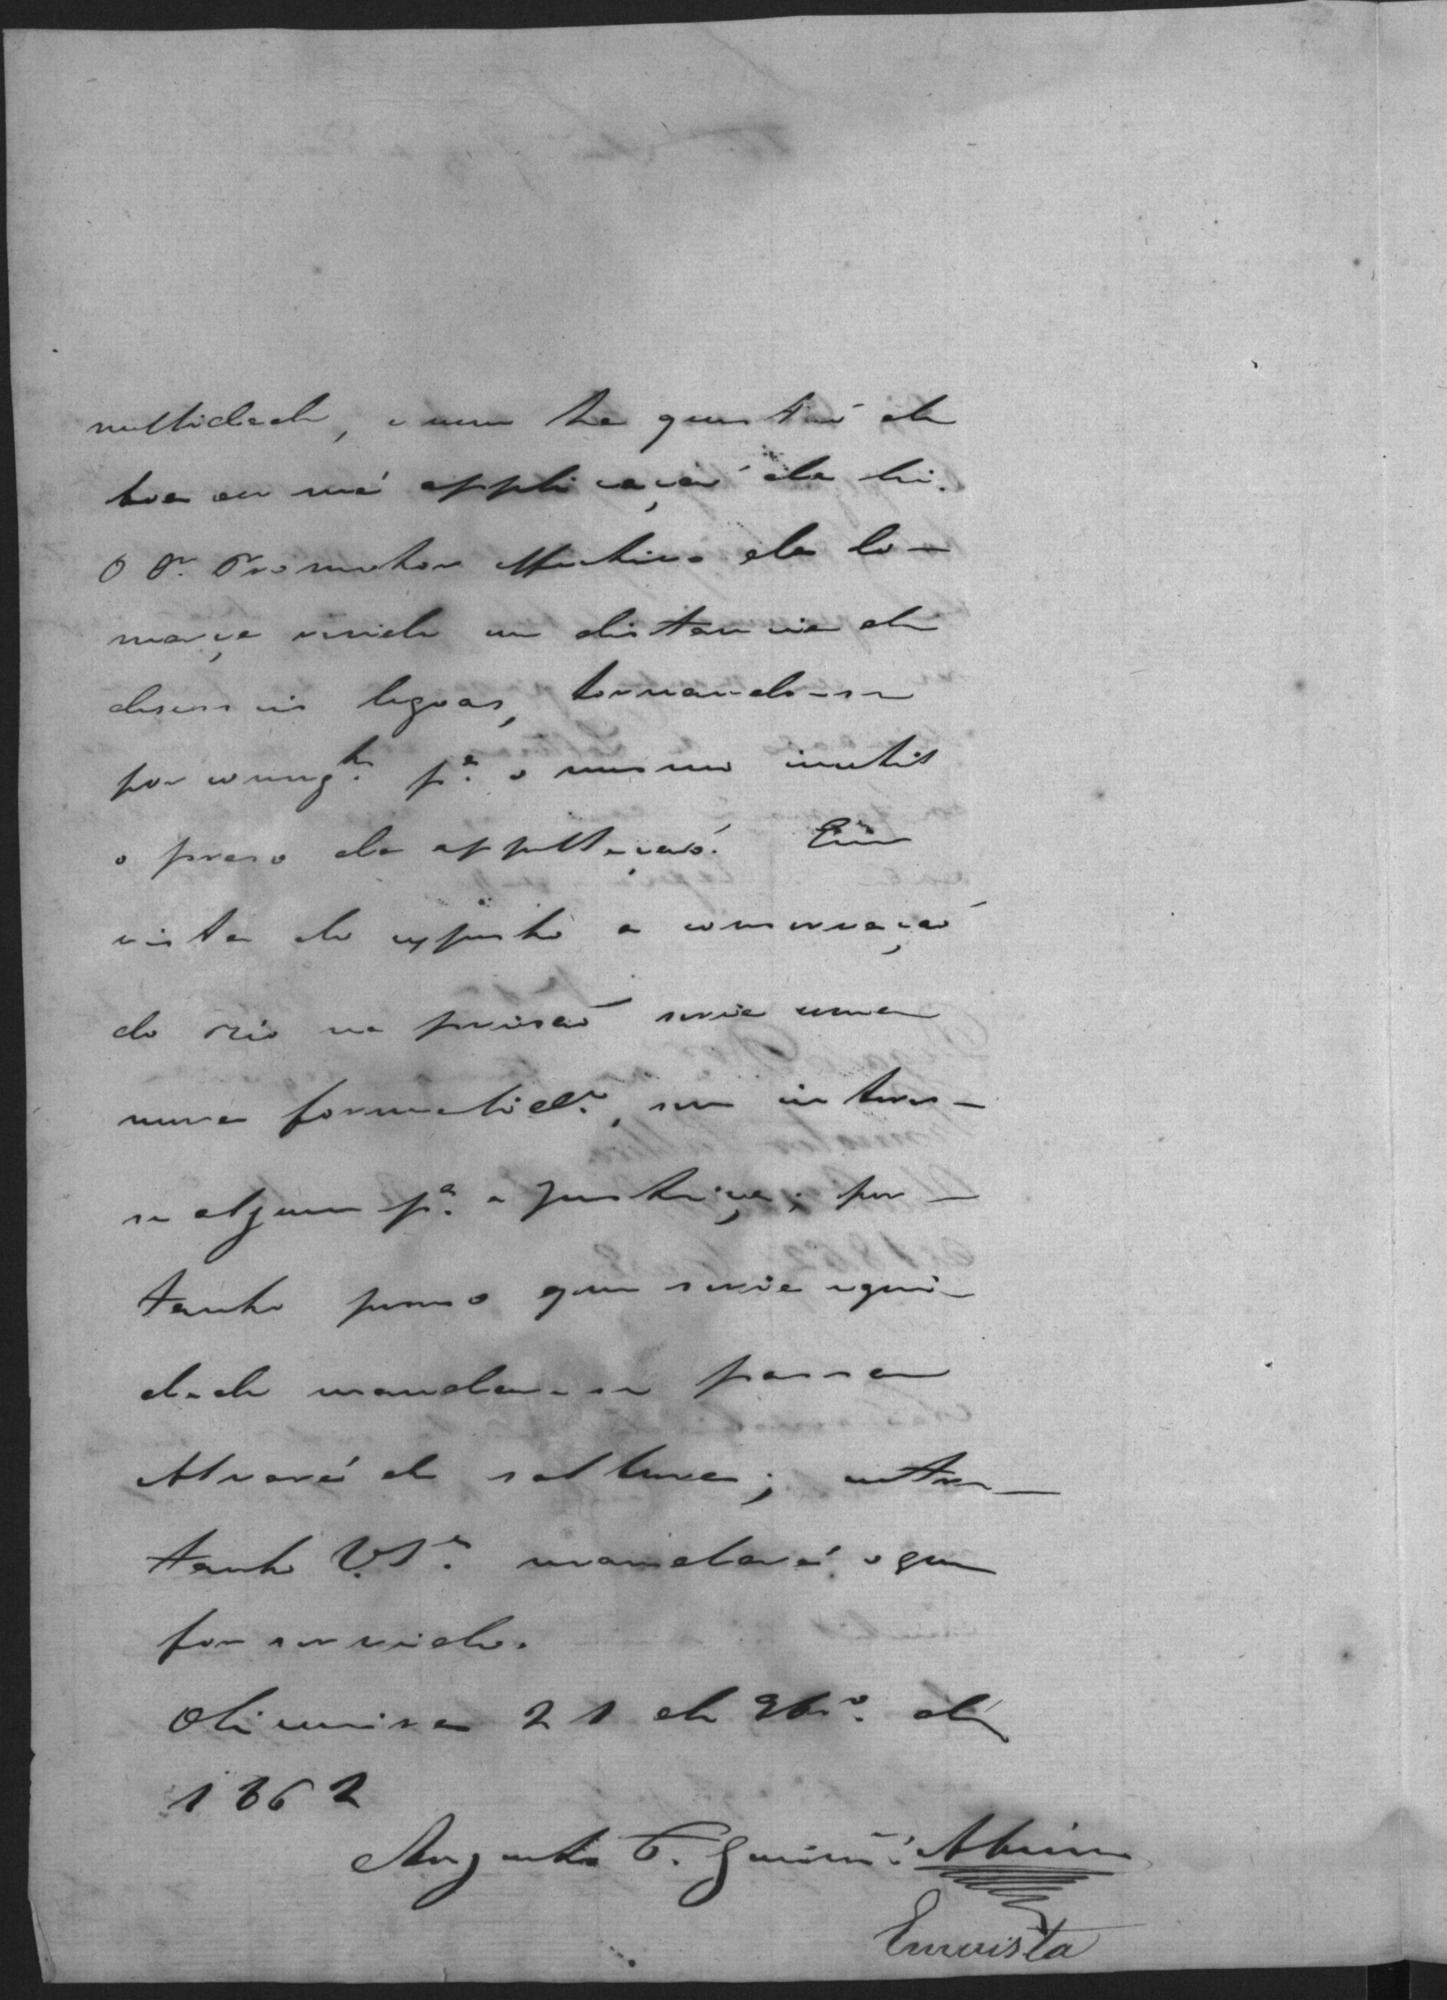 nullidade, e nem ha questaõ de
boa ou má applicaçaõ da lei.
O Dr. Promotor effectivo da Co-
marca reside em distancia de
deseseis legoas, tornando-se
por conseg.te p.a o mesmo inutil
o praso da appellaçaõ. Em
vista do exposto a conservaçaõ
do réo na prisaõ seria uma
mera formalid.e, sem interes-
se algum p.a a Justiça; por-
tanto penso que seria equi-
dade mandar-se passar
Alvará de soltura; entre-
tanto V.S.a mandará o que
for servido.
21 de 9br.o de
1862
Augusto
Em vista